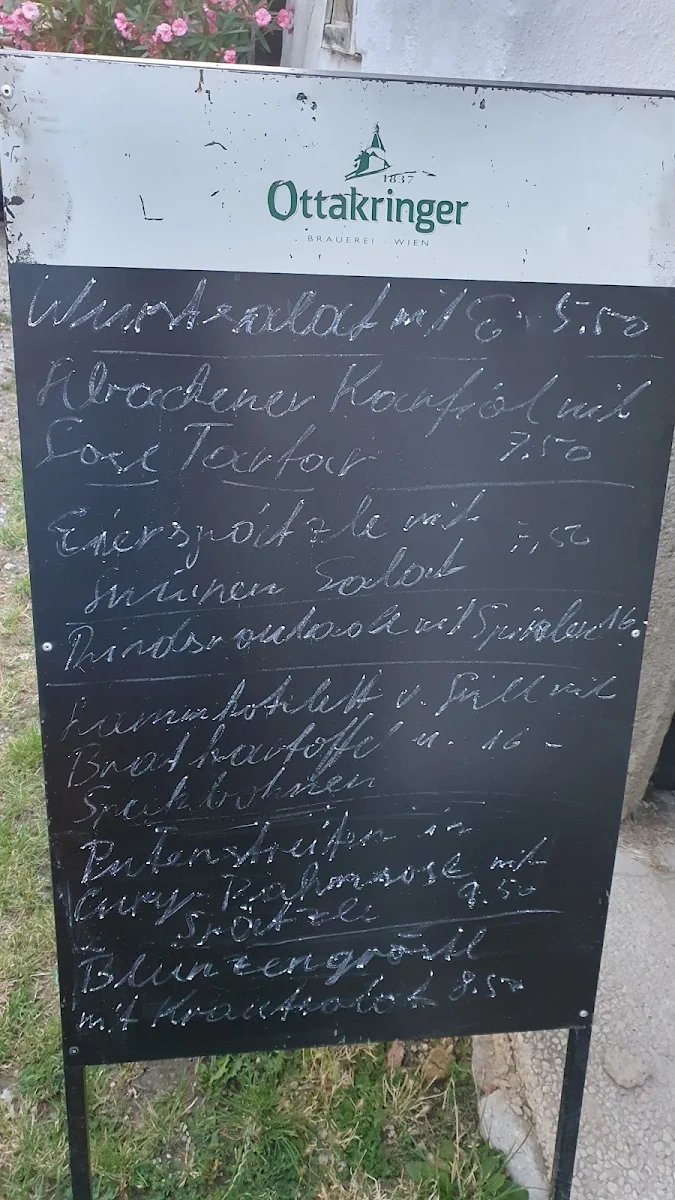 1837
Ottakringer
BRAUEREI · WIEN
Wurstsalat mit Ei 5.50
Abachener Karfiol mit
Sose Tartar 7.50
Eierspätzle mit 7,50
Grünen Salat
Rindsroulade mit Spiralen 16.
Lammkotelett v. Grill mit
Bratkartoffel u. 16 -
Speckbohnen
Putenstreifen in
Curry-Rahmsose mit
Spätzle 9.50
Blunzengröstl
mit Krautsalat 9.50